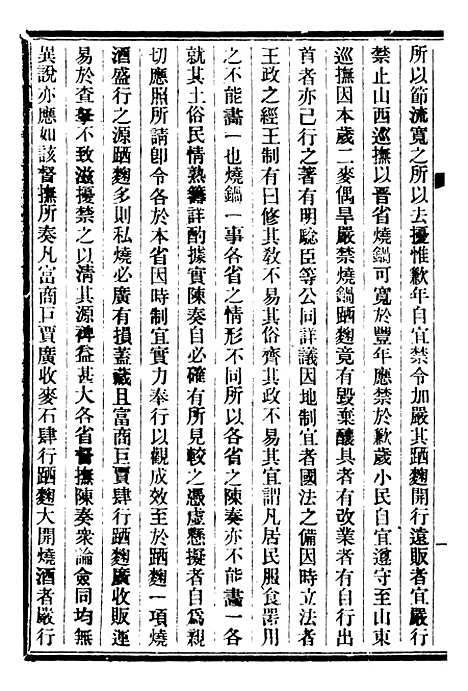 所以節流寬之所以去擾惟歉年自宜禁令加嚴其跴麴開行遠販者宜嚴行
禁止山西巡撫以晋省燒鍋可寬於豐年應禁於歉歲小民自宜遵守至山東
巡撫因本歲二麥偶旱嚴禁燒鍋跴麴竟有毀棄釀具者有改業者有自行出
首者亦已行之著有明騐臣等公同詳議因地制宜者國法之備因時立法者
王政之經王制有曰修其敎不易其俗齊其政不易其宜謂凡居民服食器用
之不能畵一也燒鍋一事各省之情形不同所以各省之陳奏亦不能畵一各
就其土俗民情熟籌詳酌據實陳奏自必確有所見較之憑虛懸擬者自爲親
切應照所請卽令各於本省因時制宜實力奉行以觀成效至於跴麴一項燒
酒盛行之源跴麴多則私燒必廣有損蓋藏且富商巨賈肆行跴麴廣收販運
易於查拏不致滋擾禁之以淸其源裨益甚大各省督撫陳奏衆論僉同均無
異說亦應如該督撫所奏凡富商巨賈廣收麥石肆行跴麴大開燒酒者嚴行